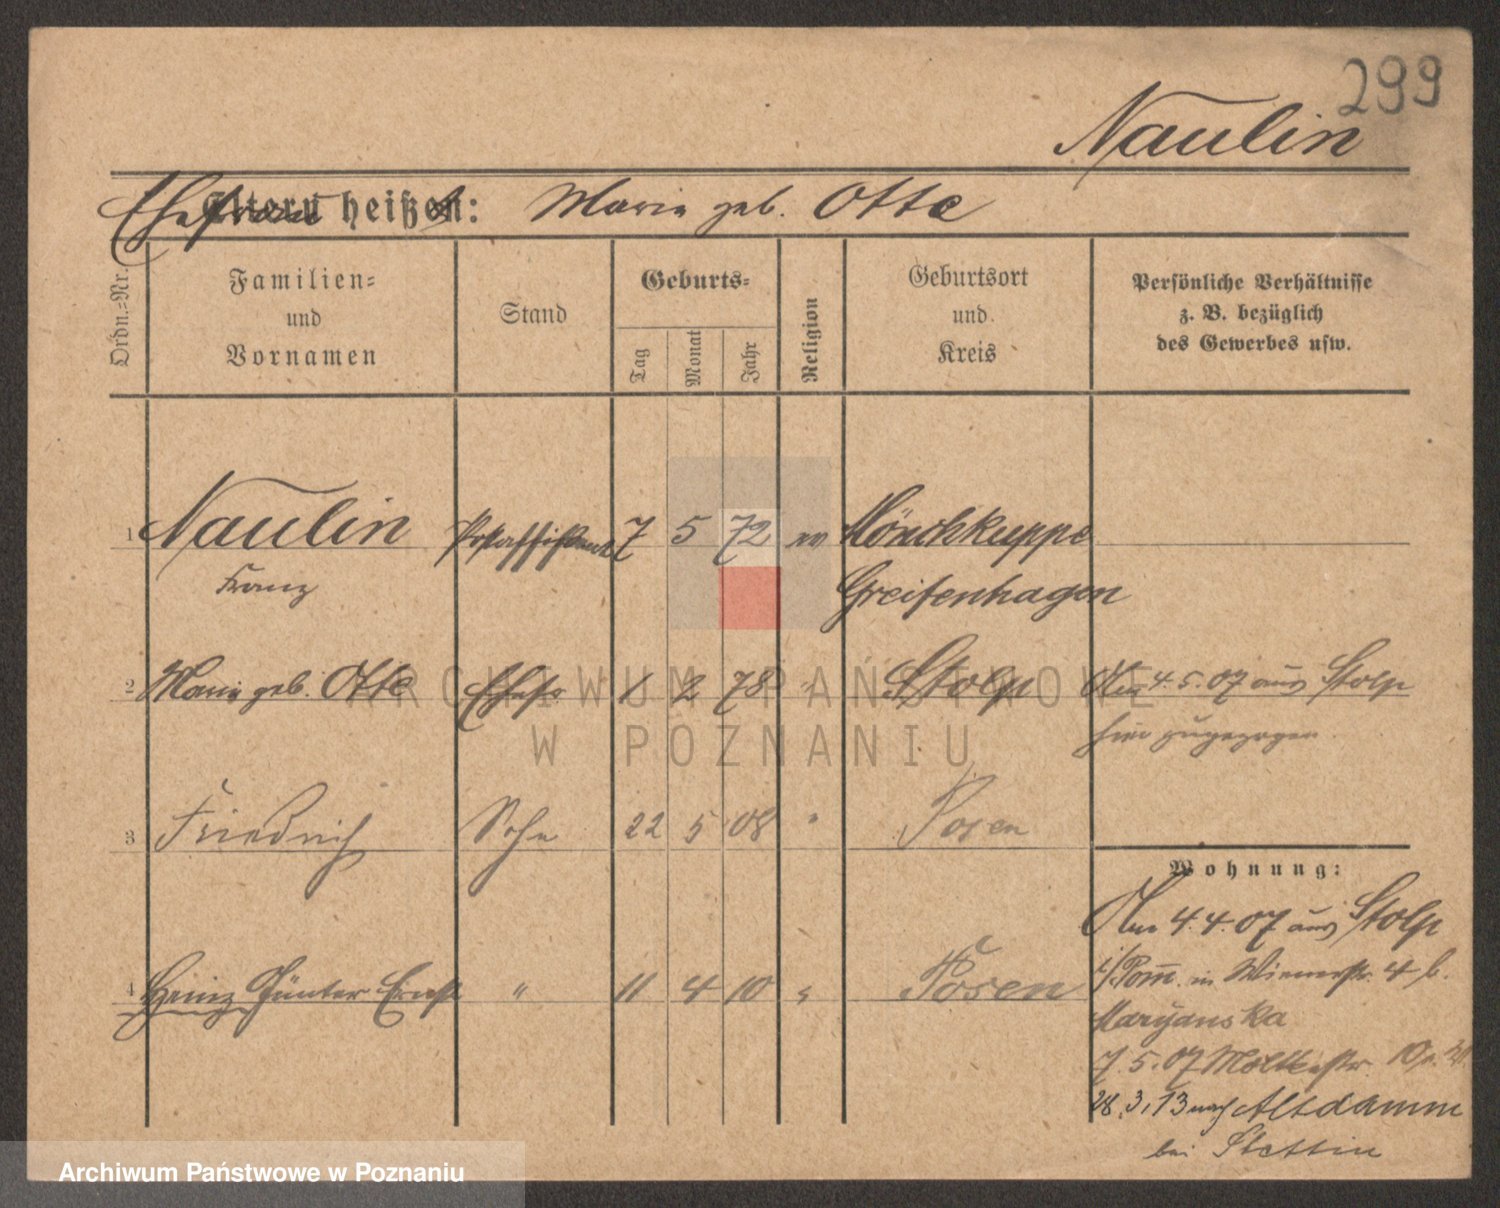 299
Naulin
Ehefrau Eltern heißen: Marie geb. Otte
Ordn.-Nr.
Familien-
und
Vornamen
Stand
Geburts-
Tag
Monat
Jahr
Religion
Geburtsort
und
Kreis
Persönliche Verhältnisse
z. B. bezüglich
des Gewerbes usw.
1 Naulin Postassistent 7 5 72 ev Mönchkuppe
Franz Greifenhagen
2 Marie geb. Otte Ehefr 1 2 78 " Stolp Am 4.5.07 aus Stolp
hier zugezogen.
3 Friedrich Sohn 22 5 08 " Posen
Wohnung:
Am 4.4.07 aus Stolp
4 Heinz Günter Ernst " 11 4 10 " Posen
i/Pom. in Wienerstr. 4 b.
Maryanska
7.5.07 Moltkestr. 10
28.3.13 nach Altdamm
bei Stettin
ARCHIWUM PAŃSTWOWE
W POZNANIU
Archiwum Państwowe w Poznaniu